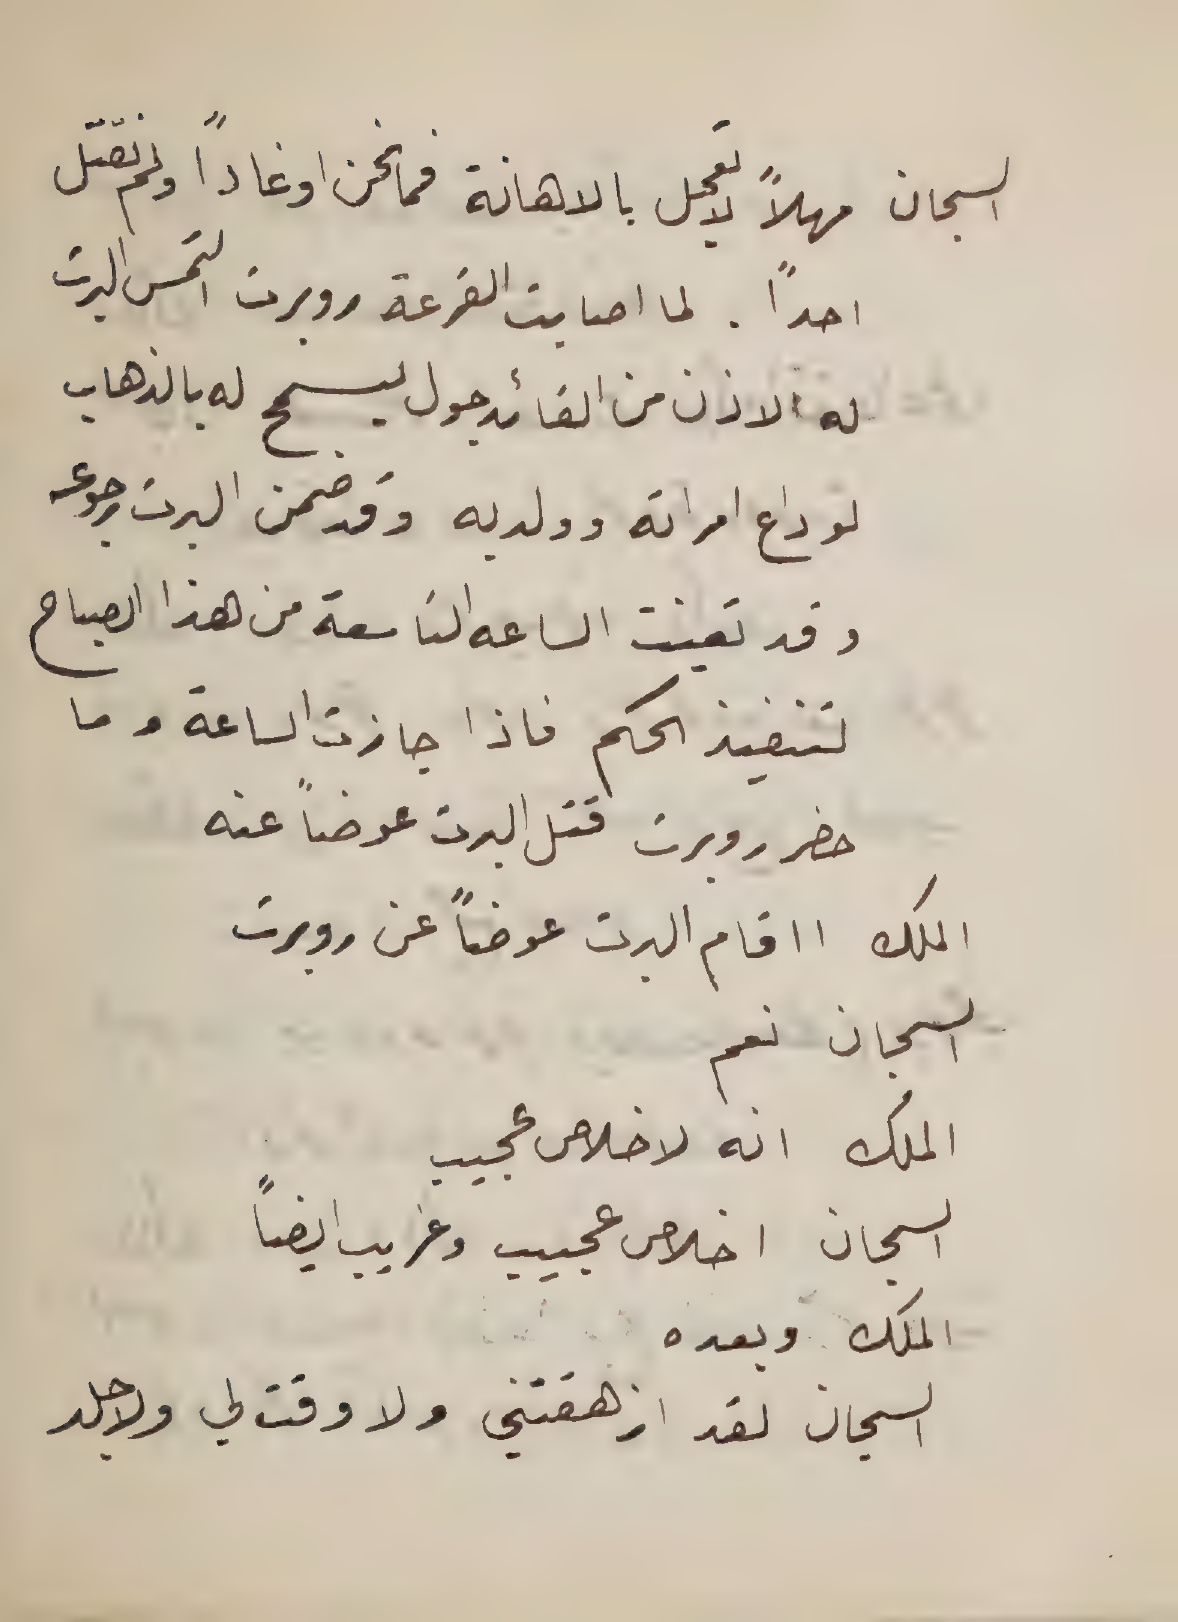 السجان مهلاً لا تعجل بالاهانة فما نحن اوغاداً ولم نقتل
احداً . لما اصابت القرعة روبرت التمس البرت
له الاذن من القائد جول ليسمح له بالذهاب
لوداع امراته وولديه وقد ضمن البرت رجوعه
وقد تعينت الساعه التاسعة من هذا الصباح
لتنفيذ الحكم فاذا جازت الساعة وما
حضر روبرت قتل البرت عوضاً عنه
الملك ااقام البرت عوضاً عن روبرت
السجان نعم
الملك انه لاخلاص عجيب
السجان اخلاص عجيب وغريب ايضاً
الملك وبعده
السجان لقد ازهقتني ولا وقت لي ولا جلد